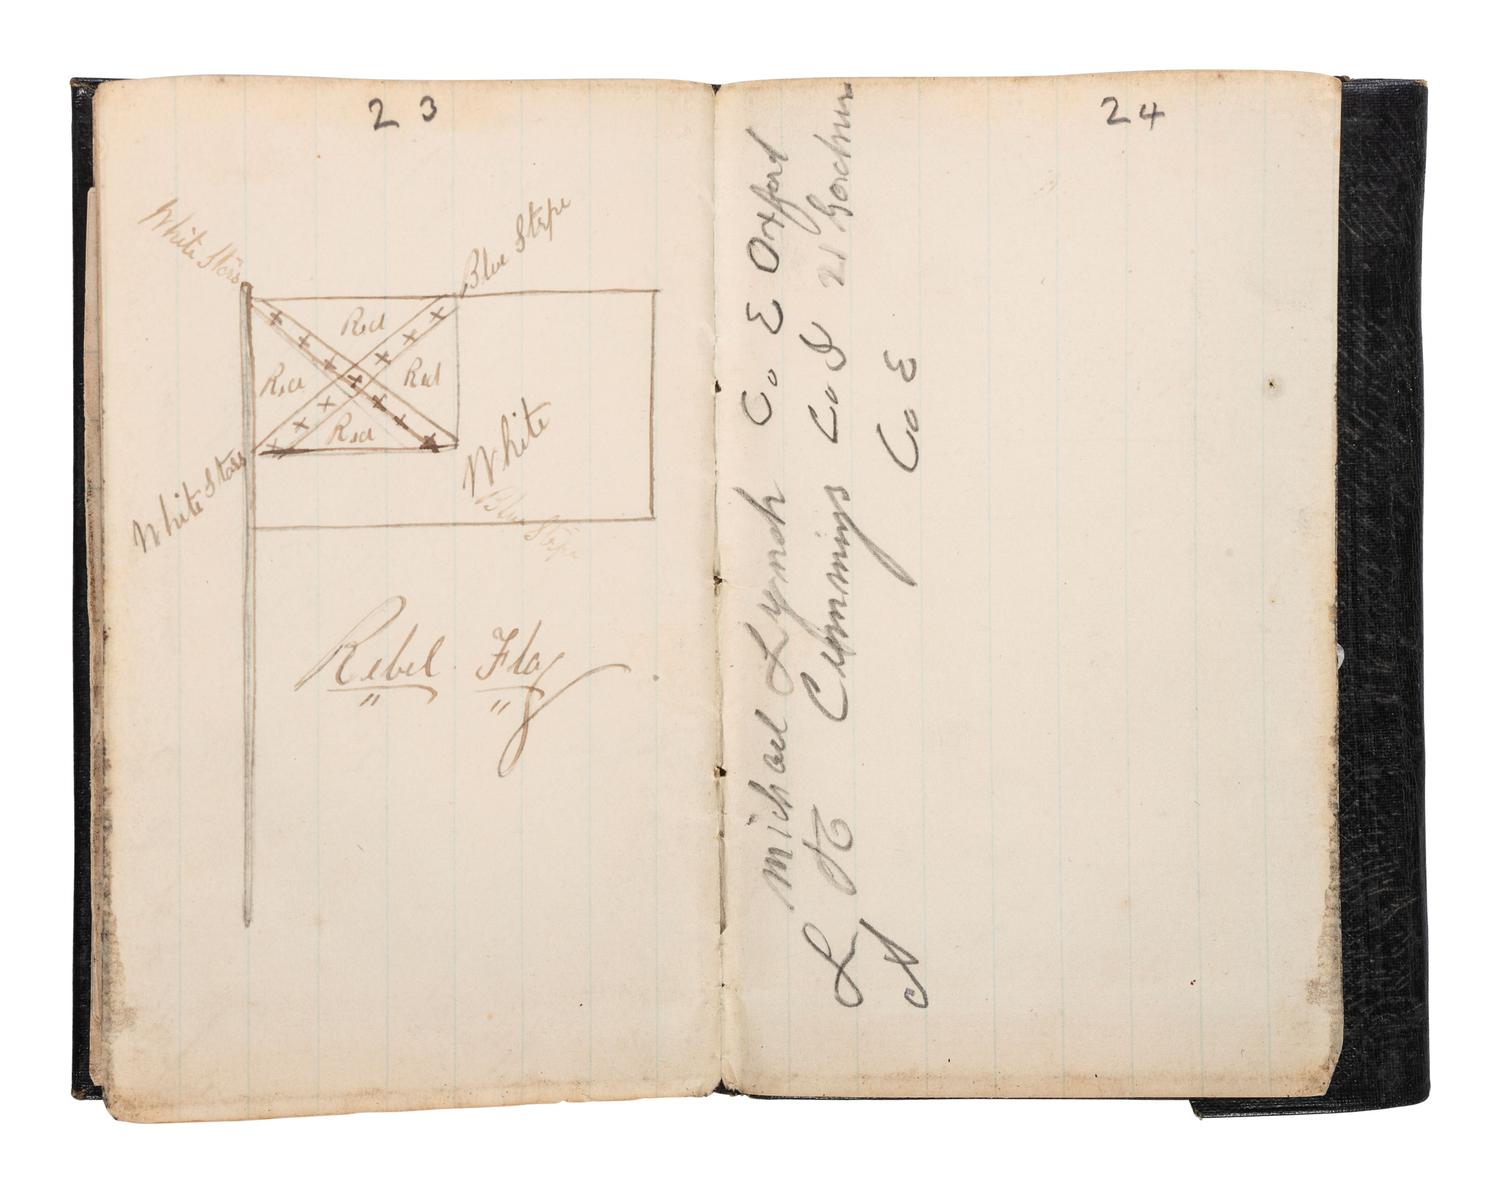 23
White Stars
Blue Stripe
Red
Red
Red
Red
White Stars
White
Blue Stripe
Rebel Flag
24
Michael Lynch Co E Oxford
L H Cummings Co I 21
A Co E